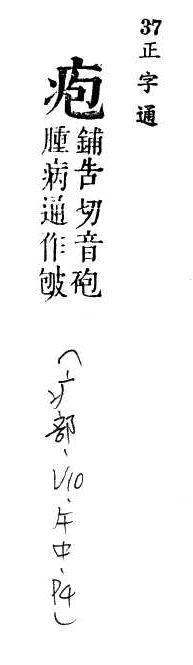 37 正字通
疱
鋪告切音砲
腫病通作皰
（疒部、V10、午中、P4）